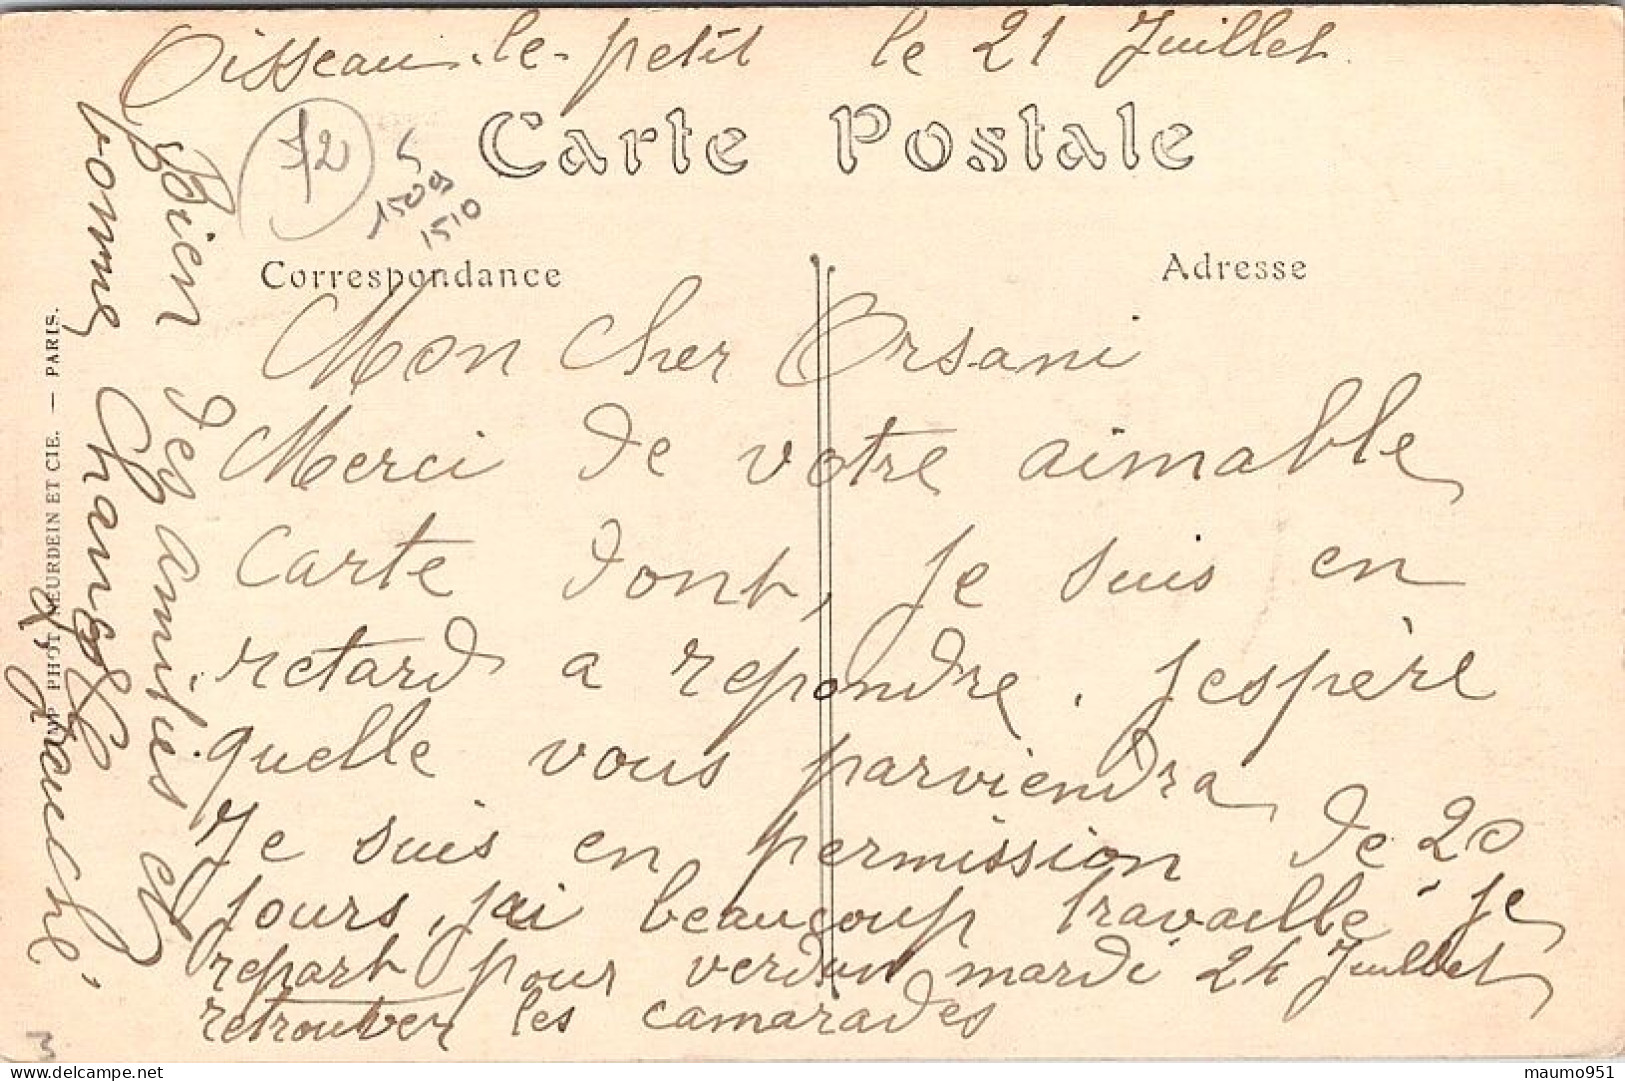 Oisseau-le-petit le 21 Juillet
72
5
1509
1510
Carte Postale
Correspondance
Adresse
Mon cher Orsani
Merci de votre aimable
carte dont, je suis en
retard a repondre. Jespère
quelle vous parviendra
Je suis en permission de 20
jours, jai beaucoup travaillé je
repart pour verdun mardi 24 Juillet
retrouver les camarades
Bien des amitiés et
bonne chance
gauché
IMP PHOT NEURDEIN ET CIE. — PARIS.
3
delcampe.net
maumo951